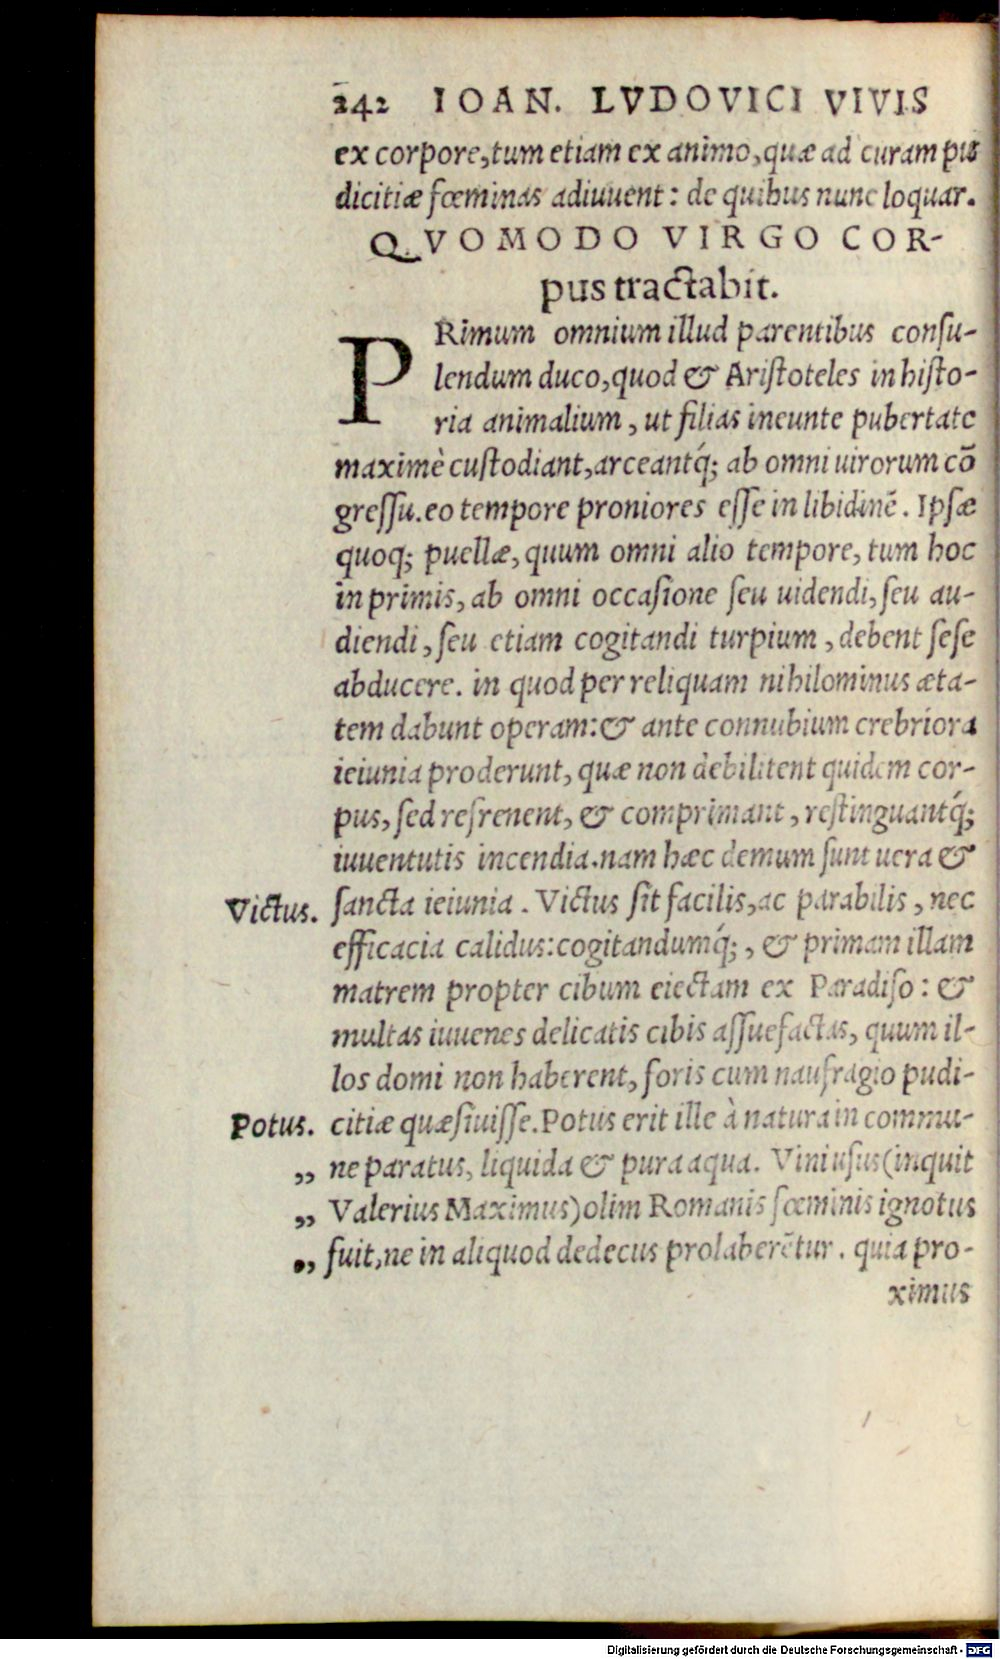 242 IOAN. LVDOVICI VIVIS
ex corpore, tum etiam ex animo, quæ ad curam pu-
dicitiæ fœminas adiuuent: de quibus nunc loquar.
QVOMODO VIRGO COR-
pus tractabit.
PRimum omnium illud parentibus consu-
lendum duco, quod & Aristoteles in histo-
ria animalium, ut filias ineunte pubertate
maximè custodiant, arceantq́; ab omni uirorum cō
gressu. eo tempore proniores esse in libidinē. Ipsæ
quoq; puellæ, quum omni alio tempore, tum hoc
in primis, ab omni occasione seu uidendi, seu au-
diendi, seu etiam cogitandi turpium, debent sese
abducere. in quod per reliquam nihilominus æta-
tem dabunt operam: & ante connubium crebriora
ieiunia proderunt, quæ non debilitent quidem cor-
pus, sed refrenent, & comprimant, restinguantq́;
iuuentutis incendia. nam hæc demum sunt uera &
Victus. sancta ieiunia. Victus sit facilis, ac parabilis, nec
efficacia calidus: cogitandumq́;, & primam illam
matrem propter cibum eiectam ex Paradiso: &
multas iuuenes delicatis cibis assuefactas, quum il-
los domi non haberent, foris cum naufragio pudi-
Potus. citiæ quæsiuisse. Potus erit ille à natura in commu-
„ ne paratus, liquida & pura aqua. Vini usus (inquit
„ Valerius Maximus) olim Romanis fœminis ignotus
„ fuit, ne in aliquod dedecus prolaberētur. quia pro-
ximus
Digitalisierung gefördert durch die Deutsche Forschungsgemeinschaft - DFG